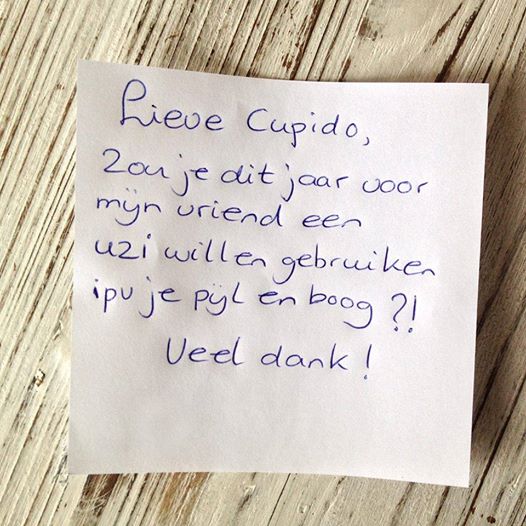 Lieve Cupido,
Zou je dit jaar voor
mijn vriend een
uzi willen gebruiken
ipv je pijl en boog ?!
Veel dank !